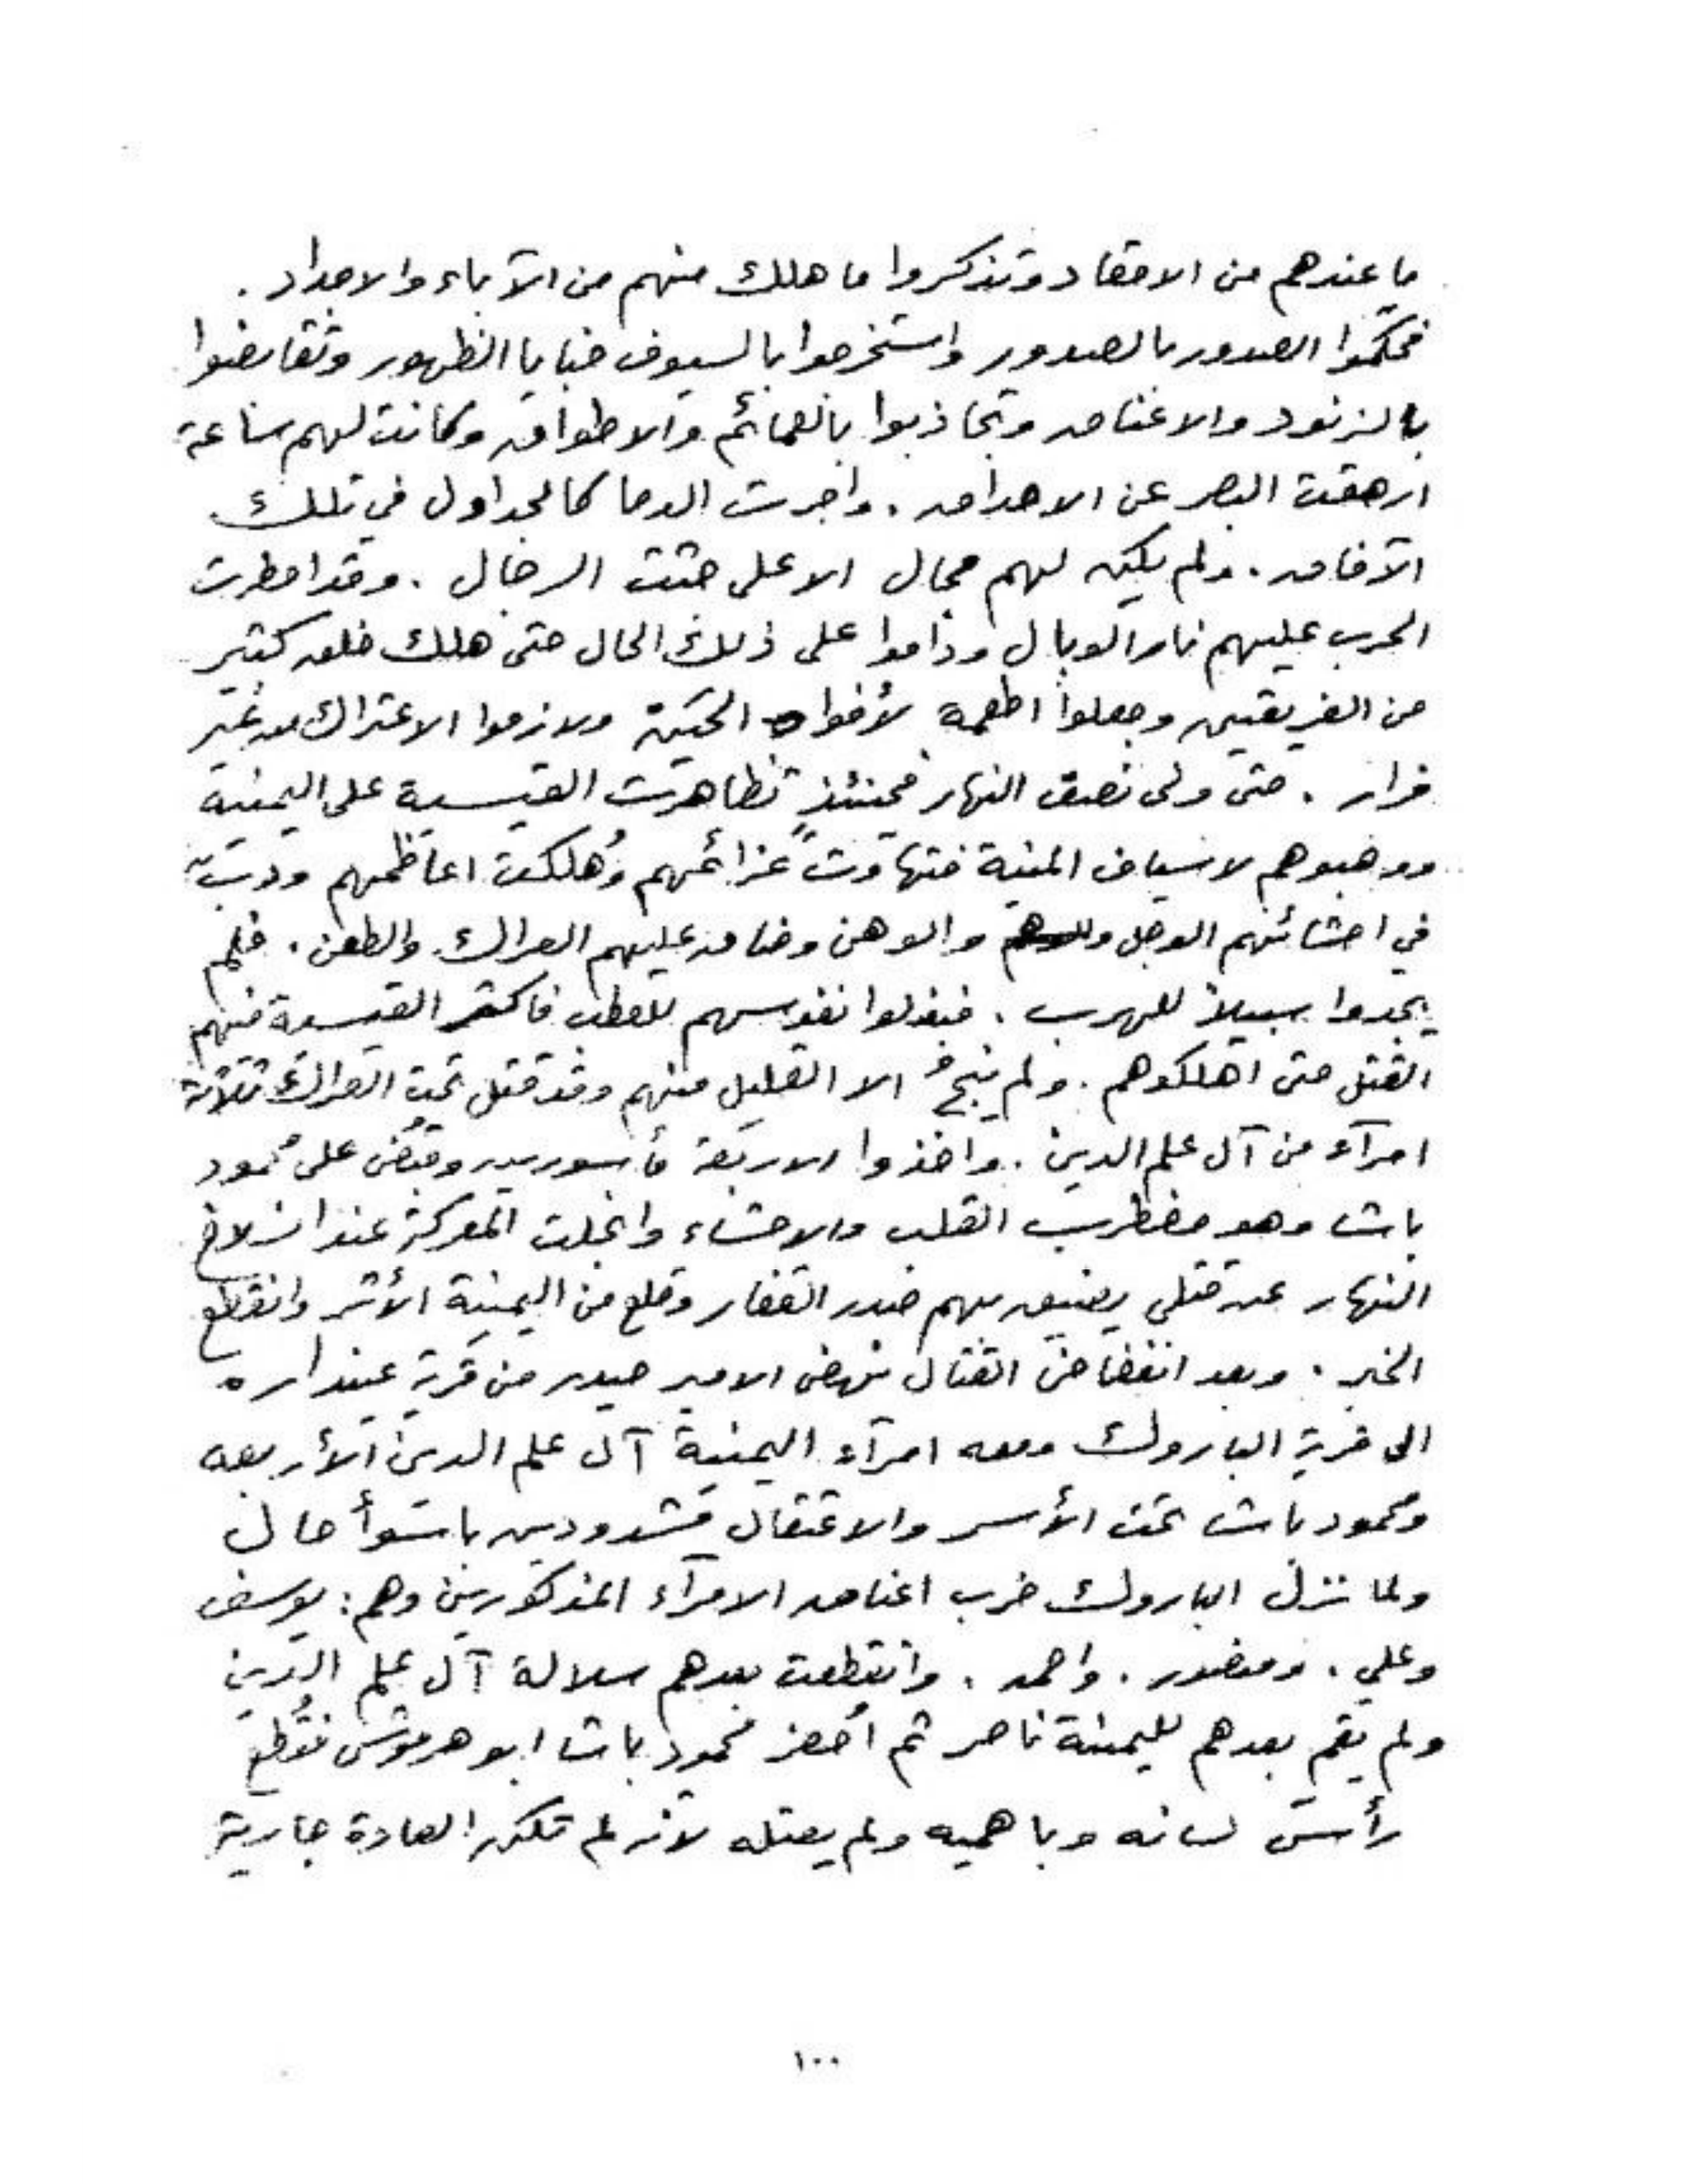 ما عندهم من الاحقاد وتذكروا ما هلك منهم من الآباء والاجداد .
فحكموا الصدور بالصدور واستخرجوا بالسيوف خبايا الظهور وتقابضوا
بالزنود والاعناق وتجاذبوا بالعمائم والاطواق وكانت لهم ساعة
ازهقت البصر عن الاحداق . واجرت الدما كالجداول في تلك
الآفاق . ولم يكن لهم مجال الا على جثث الرجال . وقد امطرت
الحرب عليهم نار الوبال وداموا على ذلك الحال حتى هلك خلق كثير
من الفريقين وجعلوا اطعمة لأفواه الحيّة ولازموا الاعتراك من غير
فرار . حتى ولى نصف النهار فحينئذٍ تظاهرت القيسية على اليمنية
ووهبوهم لاسياف المنية فتهاوت عزائمهم وهُلكت اعاظمهم ودبّت
في احشائهم الوجل والوهن وضاق عليهم العراك والطعن . فلم
يجدوا سبيلاً للهرب . فبذلوا نفوسهم للعطب فاكثر القيسية فيهم
القتل حتى اهلكوهم . ولم ينجُ الا القليل منهم وقد قتل تحت العراك ثلاثة
امرآء من آل علم الدين . واخذوا الاربعة مأسورين وقبُض على محمود
باشا وهو مضطرب القلب والاحشاء وانجلت المعركة عند انسلاخ
النهار عن قتلى يضيق بهم صدر القفار وقلع من اليمنية الأثر وانقطع
الخبر . وبعد انفضاض القتال نهض الامير حيدر من قرية عيندارہ
الى قرية الباروك ومعه امرآء اليمنية آل علم الدين الأربعه
ومحمود باشا تحت الأسر والاعتقال مشدودين باسوأ حال
ولما نزل الباروك ضرب اعناق الامرآء المذكورين وهم : يوسف
وعلي . ومنصور . واحمد . وانقطعت بعدهم سلالة آل علم الدين
ولم يقم بعدهم لليمنية ناصر ثم أحضر محمود باشا ابو هرموش فقُطع
رأس لسانه وباهميه ولم يقتله لانه لم تكن العادة جارية
١٠٠